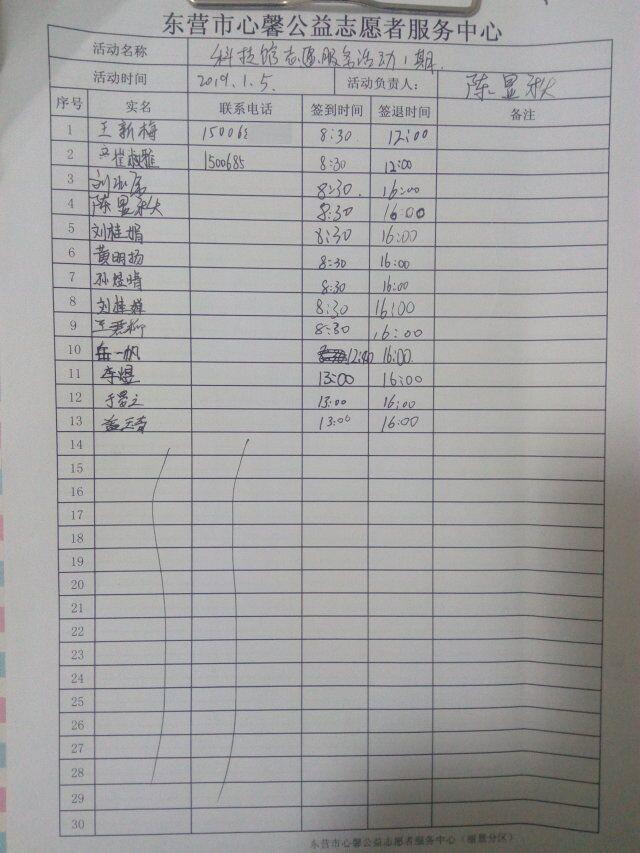 东营市心馨公益志愿者服务中心
活动名称 科技馆志愿服务活动1期
活动时间 2019.1.5. 活动负责人： 陈显秋
序号 实名 联系电话 签到时间 签退时间 备注
1 王新梅 150068 8:30 12:00
2 崔淑雅 1500685 8:30 12:00
3 8:30 16:00
4 陈显秋 8:30 16:00
5 刘桂娟 8:30 16:00
6 黄明扬 8:30 16:00
7 孙煜晴 8:30 16:00
8 8:30 16:00
9 8:30 16:00
10 岳一帆 12:40 16:00
11 李煜 13:00 16:00
12 13:00 16:00
13 13:00 16:00
14
15
16
17
18
19
20
21
22
23
24
25
26
27
28
29
30
东营市心馨公益志愿者服务中心（丽景分区）